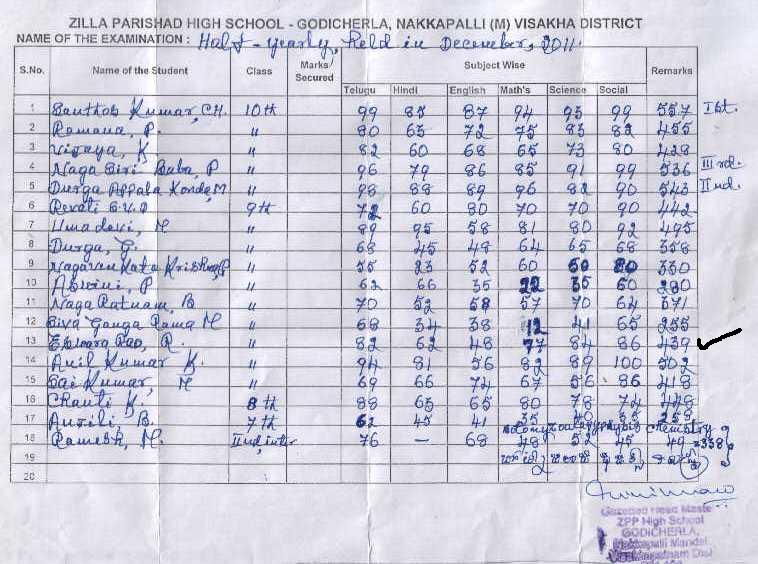 ZILLA PARISHAD HIGH SCHOOL - GODICHERLA, NAKKAPALLI (M) VISAKHA DISTRICT
NAME OF THE EXAMINATION : Half - yearly, Held in December, 2011.
S.No. Name of the Student Class Marks Secured Subject Wise Remarks
Telugu Hindi English Math's Science Social
1 Santhosh Kumar, CH. 10th 99 85 87 94 93 99 557 Ist.
2 Ramana, P. " 80 63 72 75 83 82 455
3 Vijaya, K " 82 60 68 65 73 80 428
4 Naga Siri Baba, P " 96 79 86 85 91 99 536 IIIrd.
5 Durga Appala Konda, M " 98 88 89 96 82 90 543 IInd.
6 Revati 9th 72 60 80 70 70 90 442
7 Umadevi, M " 89 95 58 81 80 92 495
8 Durga, G. " 68 45 48 64 65 68 358
9 " 55 23 52 60 60 80 330
10 Aswini, P " 62 66 35 22 35 60 280
11 Naga Ratnam, B " 70 52 58 57 70 64 371
12 Siva Ganga Rama M " 68 34 38 12 41 65 255
13 Eswara Rao, R. " 82 62 48 77 84 86 439
14 Anil Kumar K. " 94 81 56 82 89 100 502
15 Sai Kumar, M " 69 66 74 67 56 86 418
16 Chanti K. 8th 88 63 65 80 78 74 448
17 B. 7th 62 45 41 35 40 35 258
18 Ramesh, M. IInd, inter 76 - 68 48 52 45 49 =338
19
20
ZPP High School
GODICHERLA,
Nakkapalli Mandal